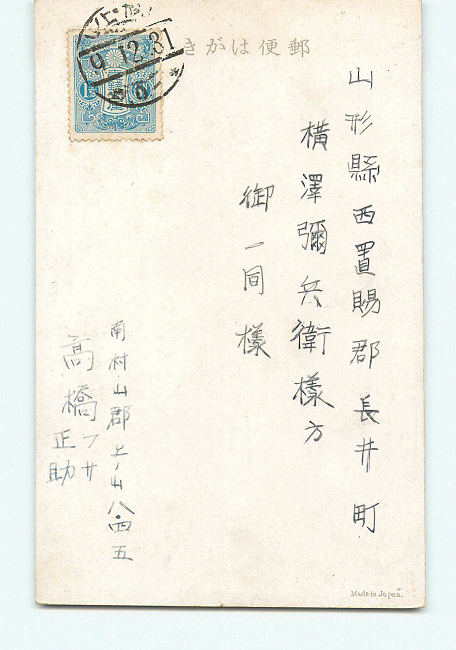 きがは便郵
9.12.31
山形縣西置賜郡長井町
橫澤彌兵衛樣方
御一同樣
南村山郡上ノ山八四五
高橋フサ
正助
Made in Japan.